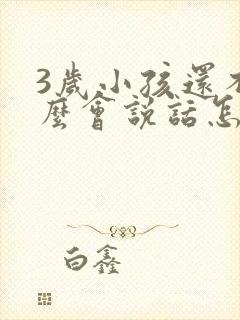 3歲小孩還不
麼會説話怎
白鑫